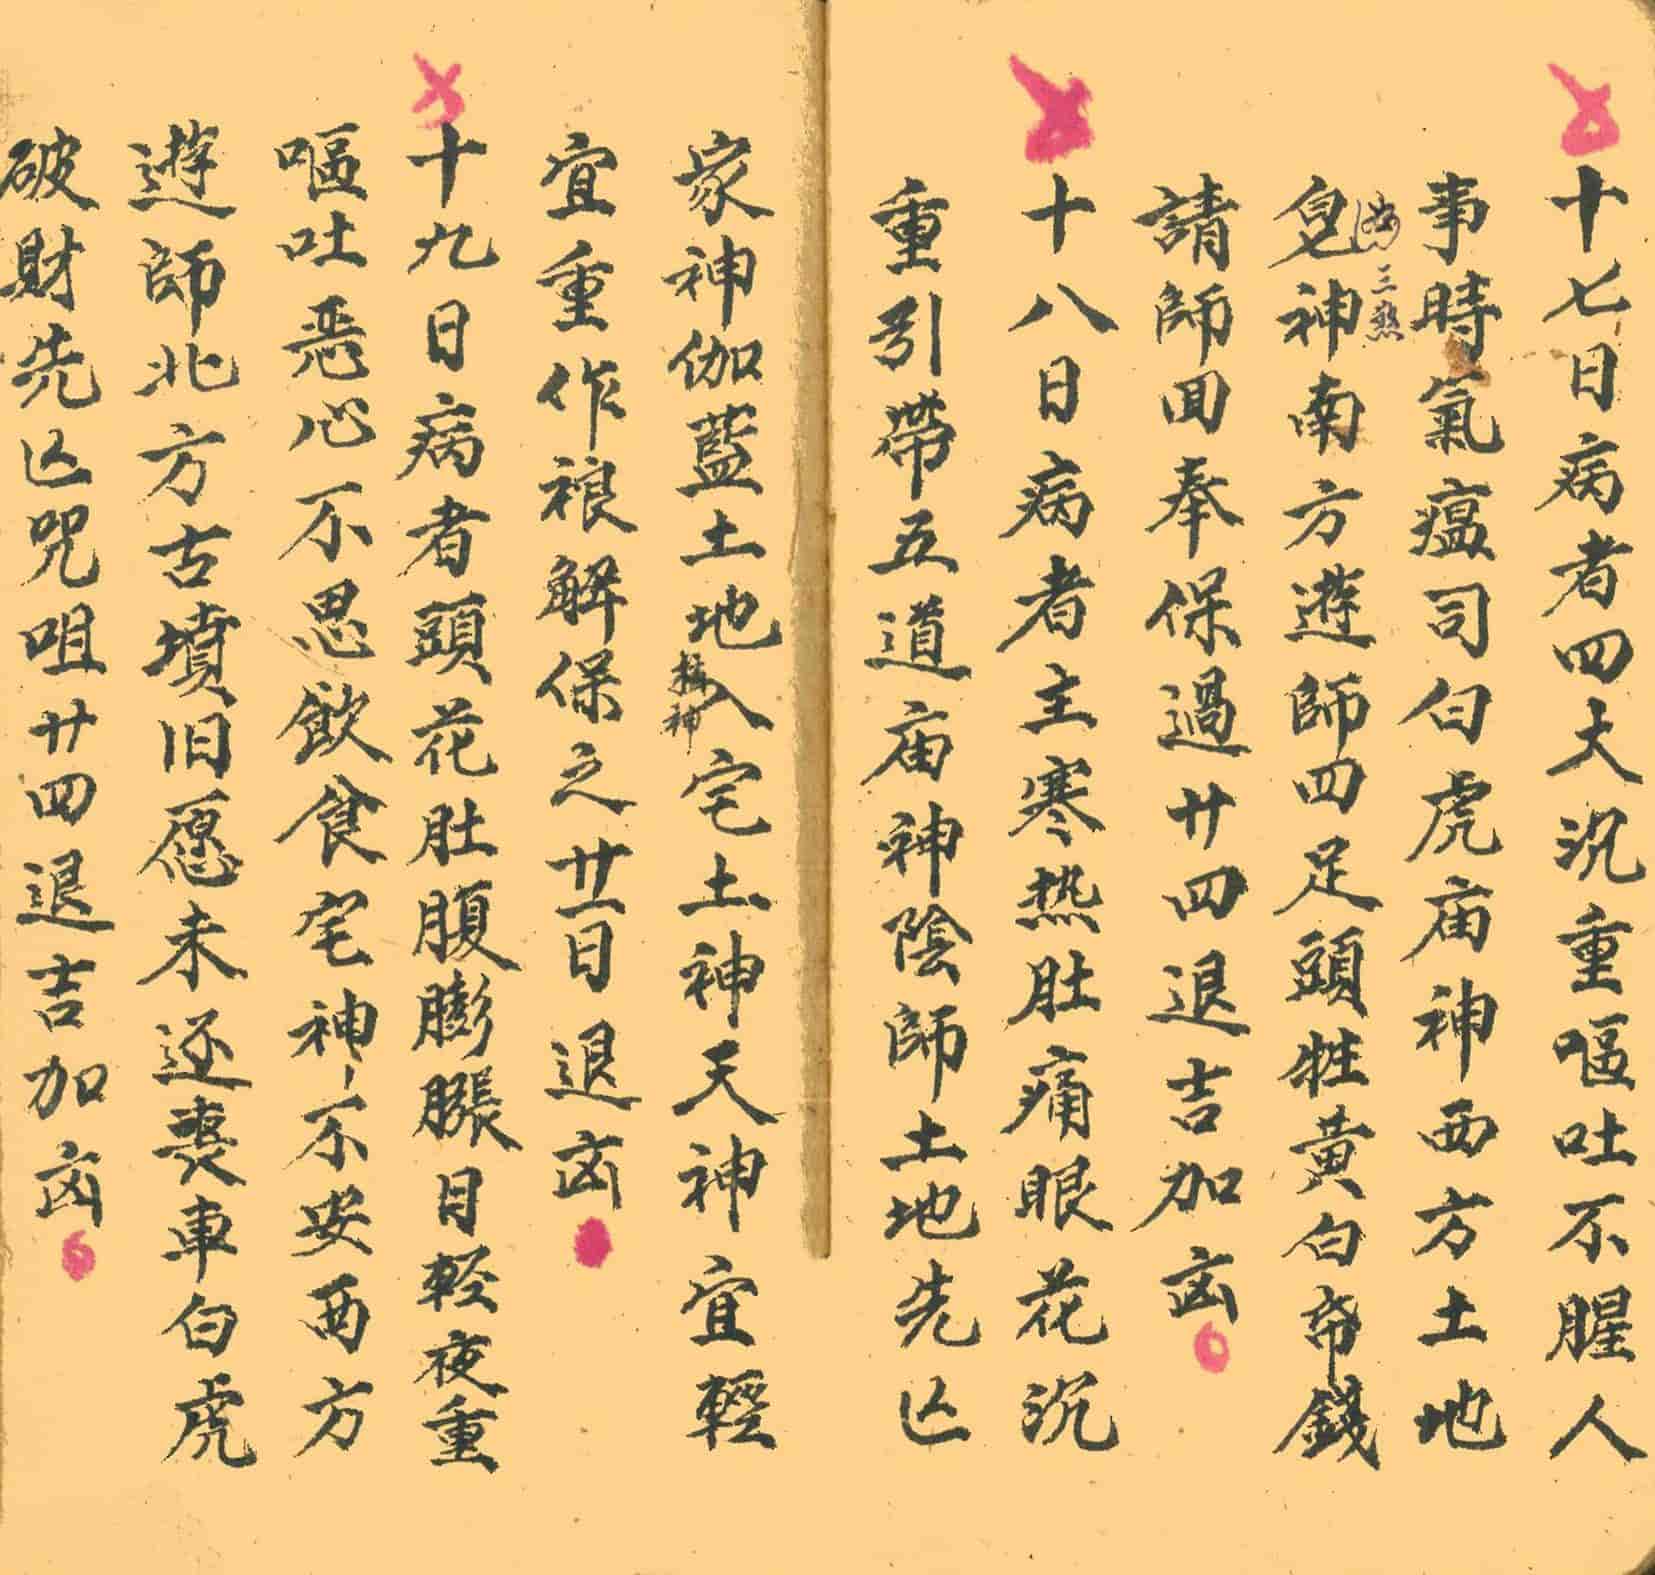 十七日病者四大沉重嘔吐不腥人
事時氣瘟司白虎庙神西方土地
皂神南方遊師四足頭牲黃白帋錢
三熱
請師回奉保過廿四退吉加凶
十八日病者主寒熱肚痛眼花沉
重引帶五道庙神陰師土地先亾
家神伽藍土地入宅土神天神宜輕
宜重作禳解保之廿一日退凶
十九日病者頭花肚腹膨脹目輕夜重
嘔吐恶心不思飲食宅神不安西方
遊師北方古墳旧愿未还喪車白虎
破財先亾咒咀廿四退吉加凶